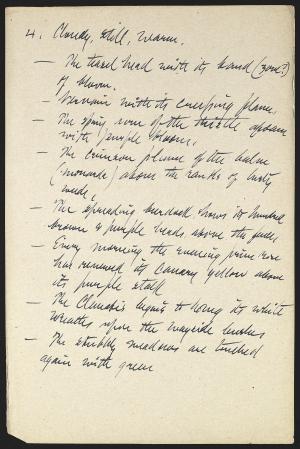 4. Cloudy, still, warm.
— The teasel head with its band (zone?)
of bloom.
— Vervain with its creeping flame.
— The spiny rose of the thistle aflame
with purple bloom.
The crimson plume of the balm
(monarda) above the ranks of lusty
weeds,
— The spreading burdock shows its
brown & purple heads above the
— Every morning the evening primrose
has renewed its canary yellow above
its purple stalk
— The Clematis begins to hang its white
wreaths upon the wayside bushes
— The stubbly meadows are touched
again with green